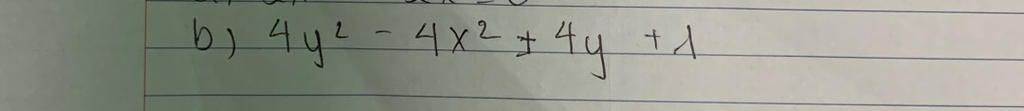 b) 4y² - 4x² + 4y + 1